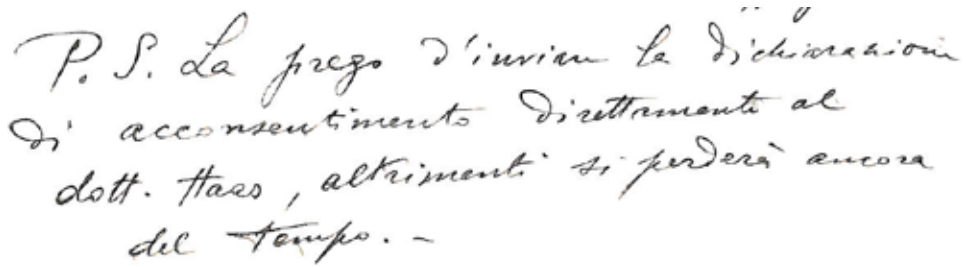 P. S. La prego d'inviare la dichiarazione
di acconsentimento direttamente al
dott. Haas, altrimenti si perderà ancora
del tempo. -